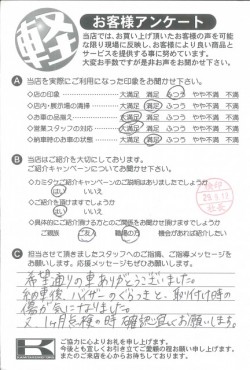 軽
お客様アンケート
当店では、お買い上げ頂いたお客様の声を可能
な限り現場に反映し、お客様により良い商品と
サービスを提供する事に努めています。
大変お手数ですが是非お声をお聞かせ下さい。
A 当店を実際にご利用になった印象をお聞かせ下さい。
◇店の印象 大満足 満足 ふつう やや不満 不満
◇店内・展示場の清掃 大満足 満足 ふつう やや不満 不満
◇お車の品揃え 大満足 満足 ふつう やや不満 不満
◇営業スタッフの対応 大満足 満足 ふつう やや不満 不満
◇納車時のお車の状態 大満足 満足 ふつう やや不満 不満
B 当店はご紹介を大切にしております。
ご紹介キャンペーンについてお聞かせ下さい。
◇カミタケご紹介キャンペーンのご説明はありましたでしょうか
はい いいえ
◇ご紹介を頂けますでしょうか
はい いいえ
◇具体的にご紹介頂ける方との関係をお聞かせ頂けますでしょうか
ご親戚 ご友人 職場の方 機会があれば紹介したい
C 担当させて頂きましたスタッフへのご指摘、ご指導メッセージを
お願いします。応援メッセージもぜひお願いします。
希望通りの車ありがとうございました。
納車後、バイザーのぐらつきと、取り付け時の
傷が気になりました。
又1ヶ月点検の時確認宜しくお願いします。
K
ご協力に心よりお礼を申し上げます。
今後とも変わらぬお引き立てご愛顧の程お願い申し上げます。
またのご来店を心からお待ちしております。